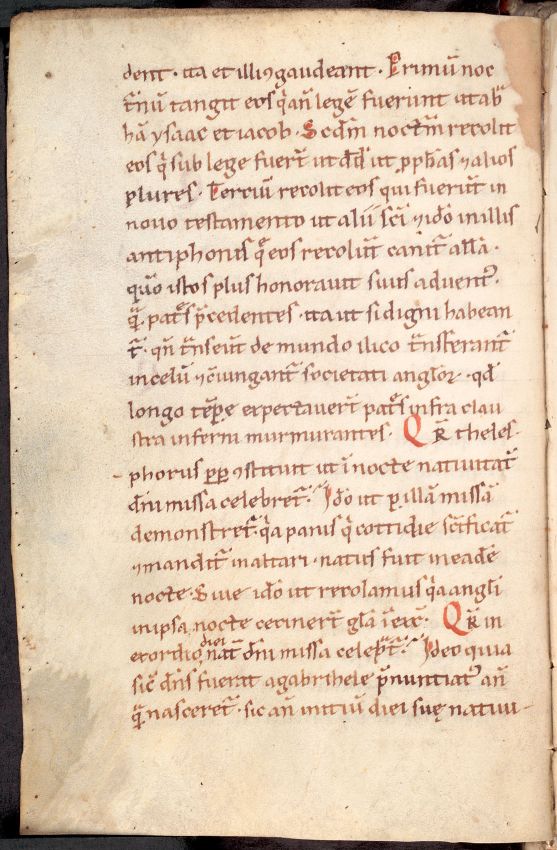 dent · ita et illi ꝯgaudeant · Primū noc
t̄nū tangit eos q̄ an̄ legē fuerunt ut ab
hā ysaac et iacob · Scd̄m noct̄m recolit
eos q̄ sub lege fuer̄t ut dd̄ ut ꝓph̄as ⁊ alios
plures · Terciū recolit eos qui fuerūt in
nouo testamento ut alii sc̄i ⁊ idō in illis
antiphonis q̄ eos recolūt canit̄ all̄a ·
quō istos plus honorauit suis aduent᷒ ·
q̄ patr̄s p̄cedentes · ita ut si digni habean
t̄ · qn̄ t̄nseūt de mundo ilico t̄nsferant̄
in celū ⁊ ꝯiungant̄ societati anglor̄ · qd̄
longo tēp̄e expectauer̄t patr̄s infra clau
stra inferni murmurantes · Qr̄ theles
phorus pp̄ ꝯstituit ut ī nocte natiuitat̄
dn̄i missa celebret̄ · Idō ut p̱ illā missā
demonstret̄ q̄a panis q̄ cottidie sc̄ificat̄
⁊ mandit̄ in altari · natus fuit in eadē
nocte · Siue idō ut recolamus q̄a angli
in ipsa nocte cecinert̄ gl̄a ī exc̄ · Qr̄ in
exordio diei nat̄ dn̄i missa celebr̄t̄ · Ideo quia
sic̄ dn̄s fuerat a gabrihele p̄nuntiat᷒ an̄
q̄ nasceret̄ · sic an̄ initiū diei suę natiui-